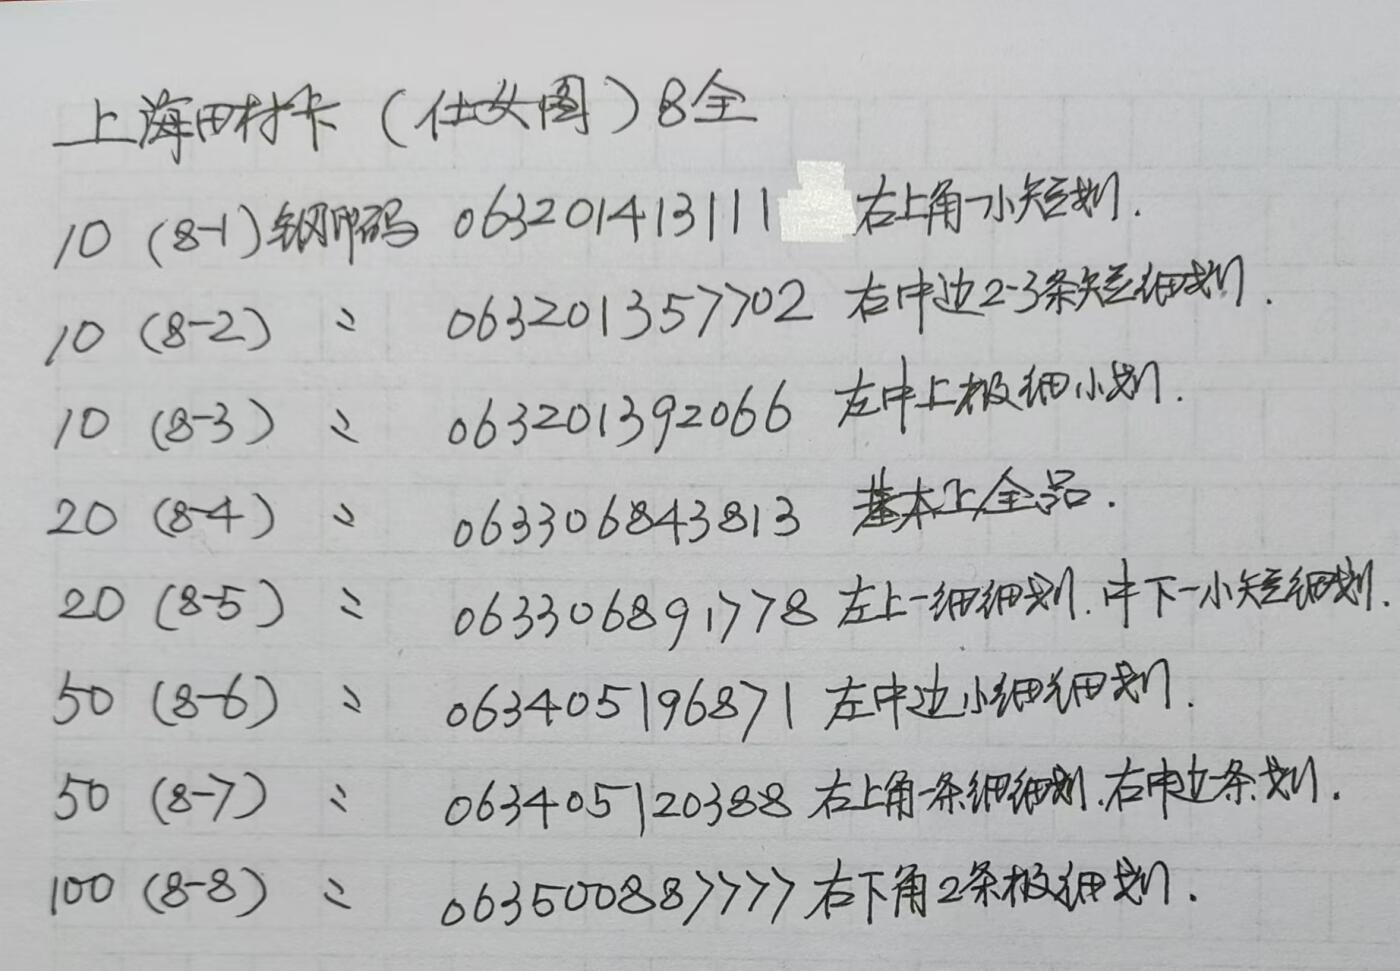 上海田村卡（仕女图）8全
10 (8-1) 钢印码 063201413111 右上角一小短划.
10 (8-2) 〃 063201357702 右中边2-3条短细划.
10 (8-3) 〃 063201392066 左中上极细小划.
20 (8-4) 〃 063306843813 基本上全品.
20 (8-5) 〃 063306891778 左上一细细划.中下一小短细划.
50 (8-6) 〃 063405196871 左中边小细细划.
50 (8-7) 〃 063405120388 右上角一条细细划.右中边一条划.
100 (8-8) 〃 063500887777 右下角2条极细划.